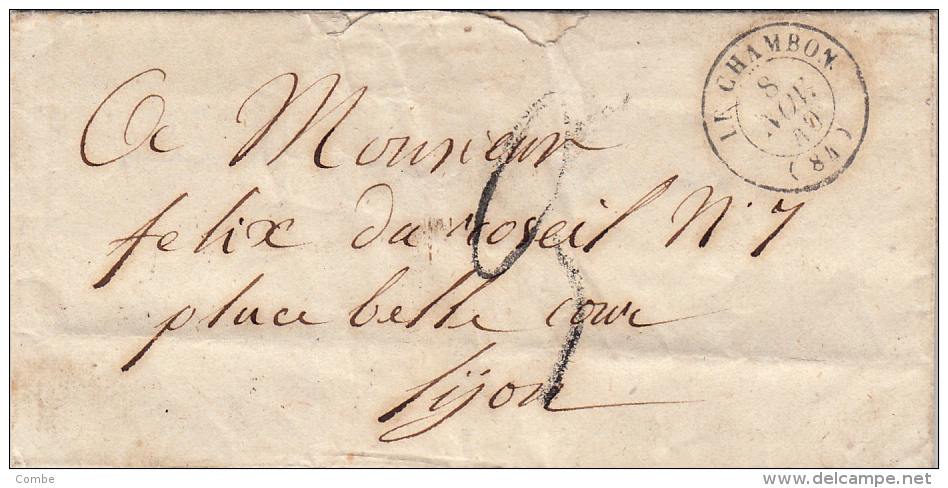 LE CHAMBON
8
NOV.
(48)
A Monsieur
felix du roseil N. 7
place belle cour
lyon
Combe
delcampe.net